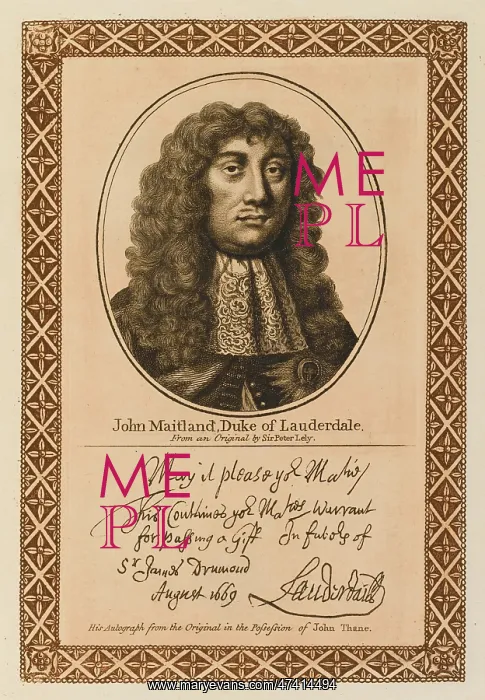 ME
PL
John Maitland, Duke of Lauderdale.
From an Original by Sir Peter Lely.
ME
PL
May it please yor Matie/
This Contines yor Maties Warrant
for passing a Gift In favors of
Sr James Drumond
August 1669 Lauderdaill
His Autograph from the Original in the Possession of John Thane.
www.maryevans.com/47414494